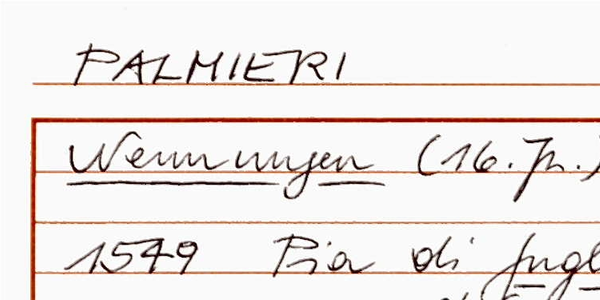 PALMIERI
Nennungen (16. Jh.)
1549 Pia di